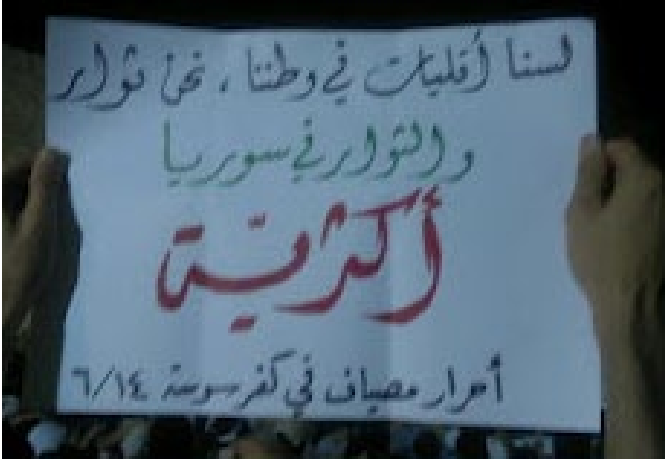 لسنا أقليات في وطننا ، نحن ثوار
والثوار في سوريا
أكثرية
أحرار مصياف في كفرسوسة ٦/١٤